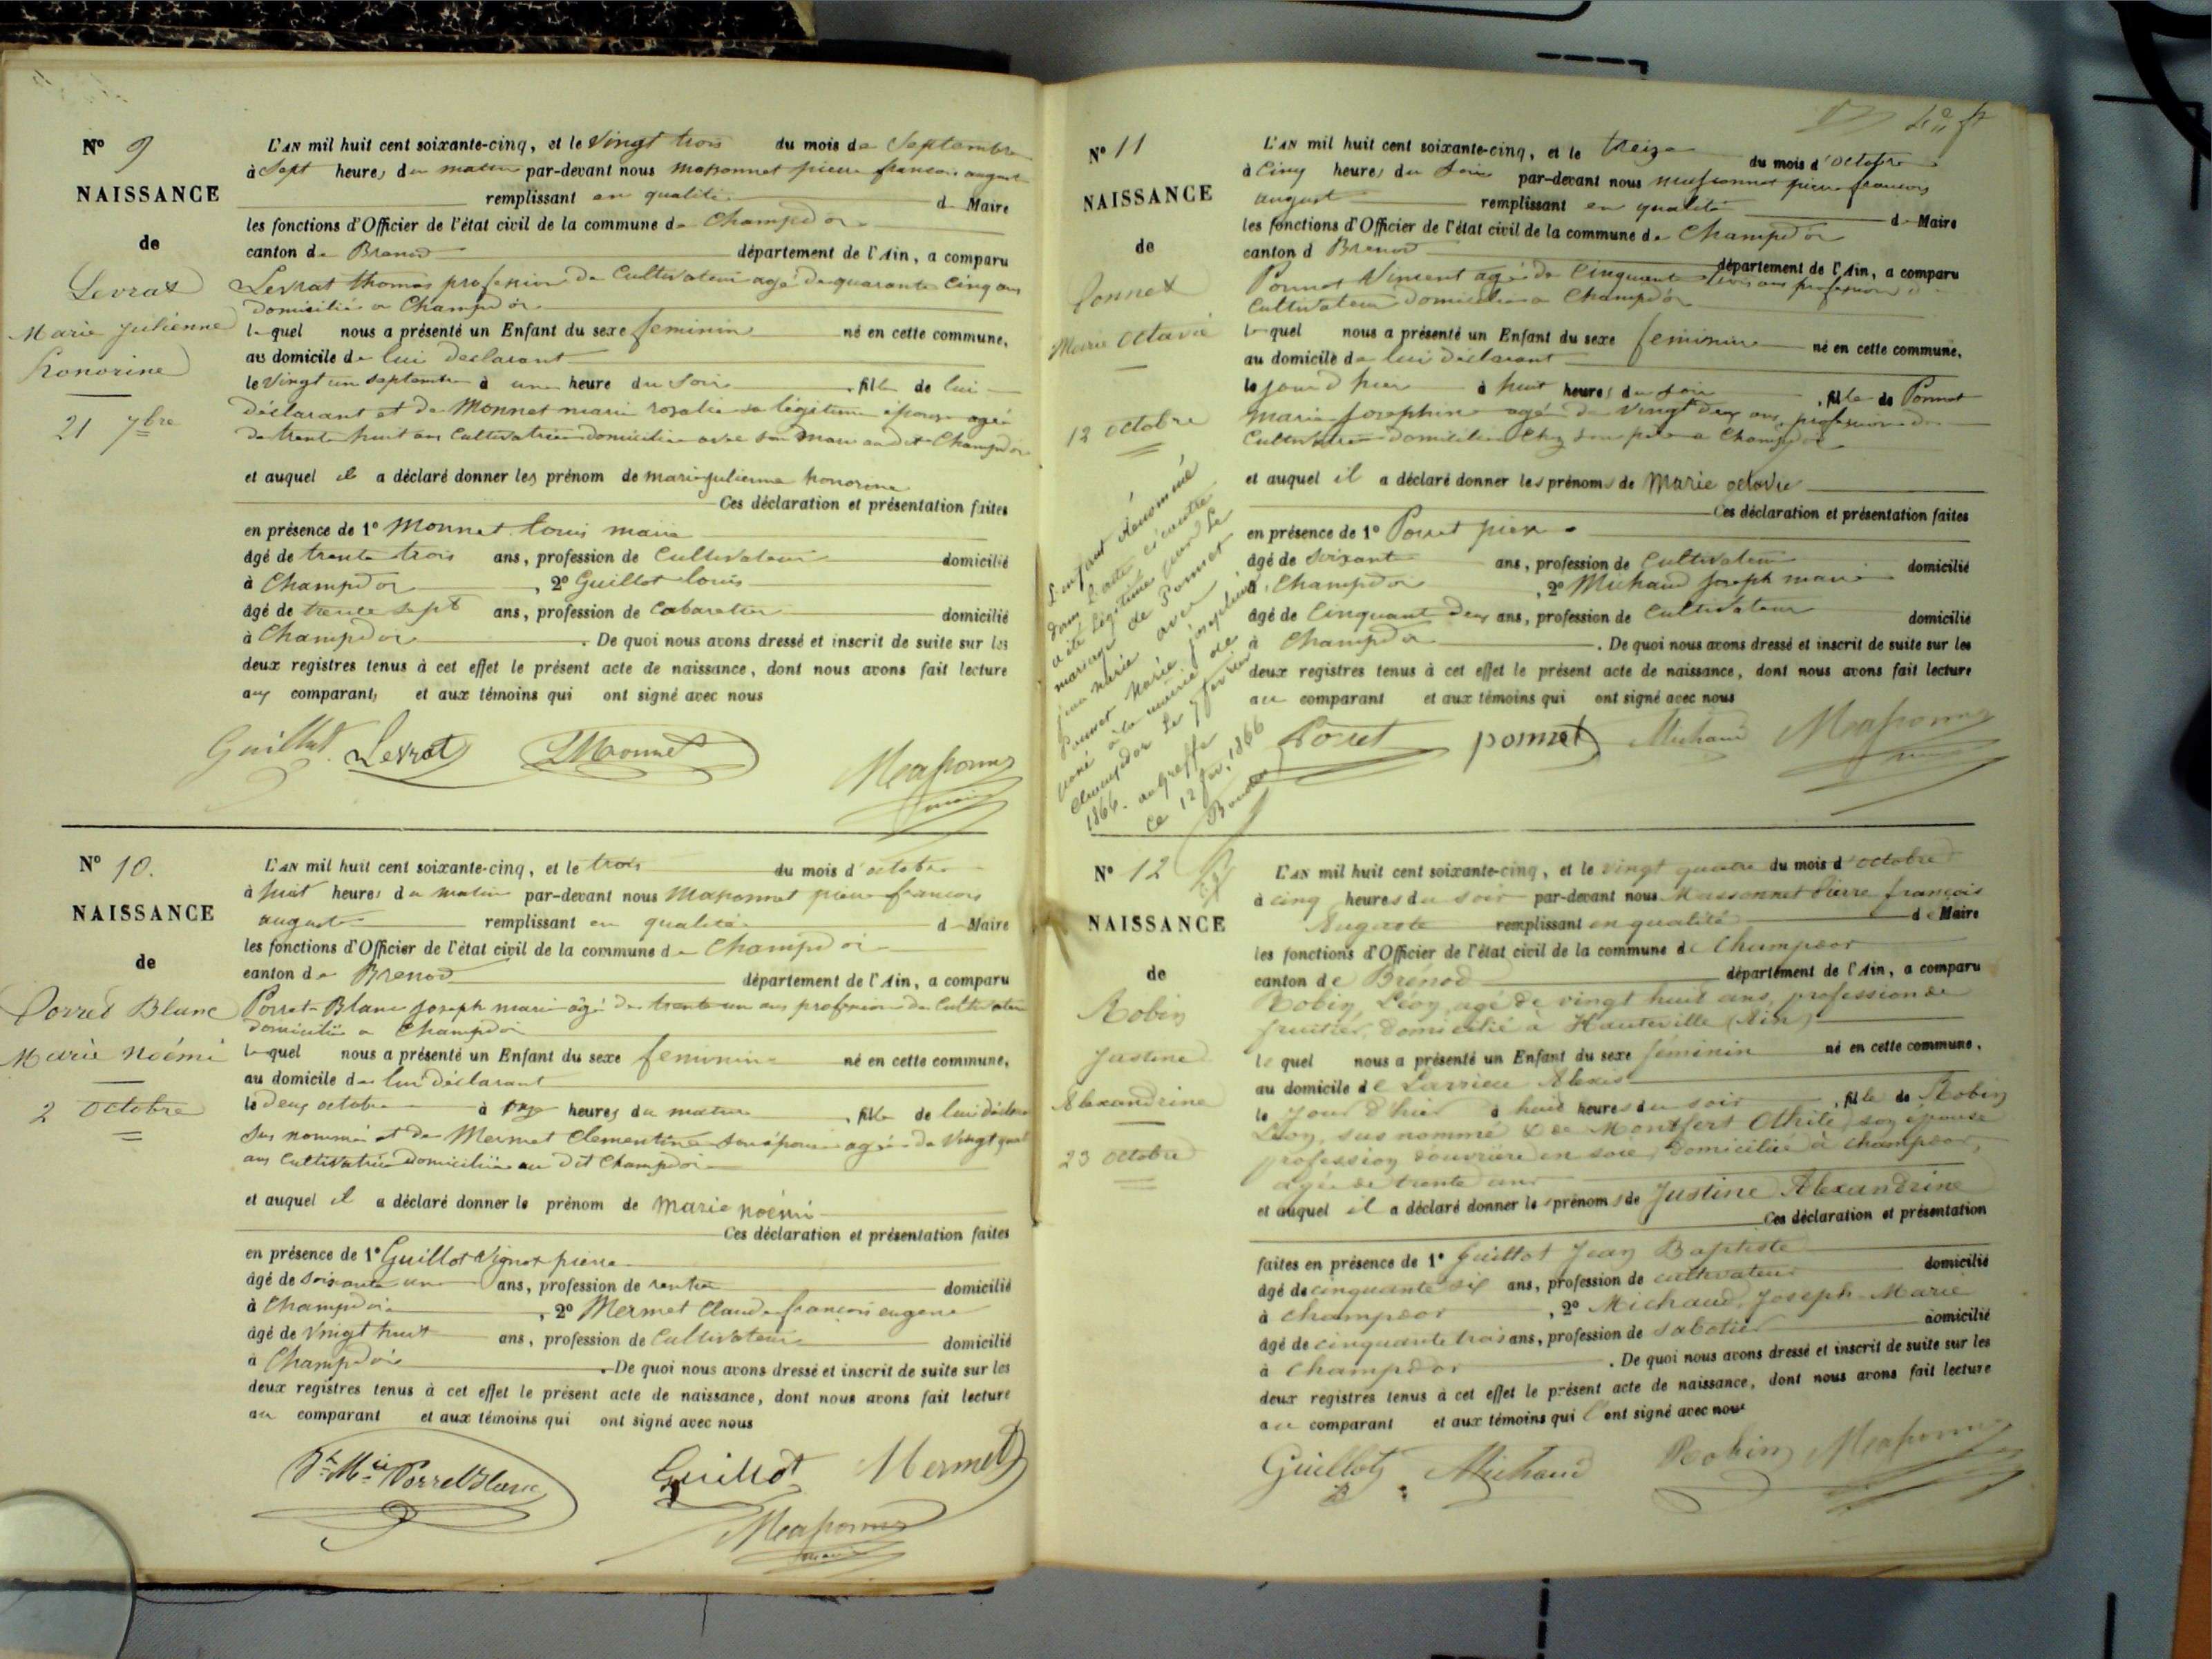 N° 9
NAISSANCE
de
Levrat
Marie Julienne
honorine
21 7bre
L'AN mil huit cent soixante-cinq, et le Vingt trois du mois de Septembre
à Sept heures du matin par-devant nous Massonnet pierre francois august
remplissant en qualité de Maire
les fonctions d'Officier de l'état civil de la commune de Champdor
canton de Brenod département de l'Ain, a comparu
Levrat thomas profession de Cultivateur agé de quarante Cinq ans
domicilié a Champdor
lequel nous a présenté un Enfant du sexe feminin né en cette commune,
au domicile de lui declarant
le Vingt un Septembre à une heure du Soir, fille de lui
déclarant et de Monnet marie rosalie sa légitime épouse agé
de trente huit ans Cultivatrice domiciliée avec son mari au dit Champdor
et auquel il a déclaré donner les prénom de marie julienne honorine
Ces déclaration et présentation faites
en présence de 1° Monnet Louis marie
âgé de trente trois ans, profession de Cultivateur domicilié
à Champdor, 2° Guillot Louis
âgé de trente sept ans, profession de Cabaretier domicilié
à Champdor. De quoi nous avons dressé et inscrit de suite sur les
deux registres tenus à cet effet le présent acte de naissance, dont nous avons fait lecture
aux comparants et aux témoins qui ont signé avec nous
Guillot Levrat LMonnet
Massonnet
maire
N° 10.
NAISSANCE
de
Porret Blanc
Marie Noémi
2 Octobre
L'AN mil huit cent soixante-cinq, et le trois du mois d'octobre
à huit heures du matin par-devant nous Massonnet pierre francois
auguste remplissant en qualité d Maire
les fonctions d'Officier de l'état civil de la commune de Champdor
canton de Brenod département de l'Ain, a comparu
Porret-Blanc Joseph marie âgé de trente un ans profession de Cultivateur
domicilié a Champdor
lequel nous a présenté un Enfant du sexe feminin né en cette commune,
au domicile de lui déclarant
le Deux octobre à onze heures du matin, fille de lui déclara
sus nommé et de Mermet Clementine son épouse agée de Vingt quat
ans Cultivatrice domiciliée au dit Champdor
et auquel il a déclaré donner le prénom de Marie noémi
Ces déclaration et présentation faites
en présence de 1° Guillot Vignot pierre
âgé de soixante un ans, profession de rentier domicilié
à Champdor, 2° Mermet Claude francois eugene
âgé de Vingt huit ans, profession de Cultivateur domicilié
à Champdor. De quoi nous avons dressé et inscrit de suite sur les
deux registres tenus à cet effet le présent acte de naissance, dont nous avons fait lecture
au comparant et aux témoins qui ont signé avec nous
Jh Mie Porret Blanc Guillot Mermet
Massonnet
maire
N° 11
NAISSANCE
de
Ponnet
Marie Octavie
12 octobre
L'enfant dénommé
dans l'acte ci contre
a été légitimé par le
mariage de Ponnet
jean marie avec
Ponnet Marie joséphine
à la mairie de
Champdor le 7 février
1866. au Greffe
ce 12 fév. 1866
L'AN mil huit cent soixante-cinq, et le treize du mois d'octobre
à Cinq heures du Soir par-devant nous Massonnet pierre francois
august remplissant en qualité d Maire
les fonctions d'Officier de l'état civil de la commune de Champdor
canton d Brenod département de l'Ain, a comparu
Ponnet Vincent agé de Cinquante trois ans profession de
Cultivateur domicilié a Champdor
lequel nous a présenté un Enfant du sexe feminin né en cette commune,
au domicile de lui déclarant
le jour d'hier à huit heures du soir, fille de Ponnet
Marie Josephine agé de Vingt deux ans, profession de
Cultivatrice domiciliée Chez son père a Champdor
et auquel il a déclaré donner les prénoms de Marie octavie
Ces déclaration et présentation faites
en présence de 1° Porret pierre
âgé de Soixante ans, profession de Cultivateur domicilié
à Champdor, 2° Michaud Joseph marie
âgé de Cinquante deux ans, profession de Cultivateur domicilié
à Champdor. De quoi nous avons dressé et inscrit de suite sur les
deux registres tenus à cet effet le présent acte de naissance, dont nous avons fait lecture
au comparant et aux témoins qui ont signé avec nous
Porret ponnet Michaud Massonnet
N° 12
NAISSANCE
de
Robin
Justine
Alexandrine
23 octobre
L'AN mil huit cent soixante-cinq, et le vingt quatre du mois d'octobre
à cinq heures du soir par-devant nous Massonnet Pierre françois
Auguste remplissant en qualité de Maire
les fonctions d'Officier de l'état civil de la commune de Champdor
canton de Brénod département de l'Ain, a comparu
Robin, Léon, agé de vingt huit ans, profession de
fruitier, domicilié à Hauteville (Ain)
le quel nous a présenté un Enfant du sexe féminin né en cette commune,
au domicile de Larrieu Alexis
le jour d'hier à huit heures du soir, fille de Robin
Léon, sus nommé & de Montfert Othile, son épouse
profession d'ouvrière en soie, domiciliée à Champdor,
agée de trente ans
et auquel il a déclaré donner les prénoms de Justine Alexandrine
Ces déclaration et présentation
faites en présence de 1° Guillot Jean Baptiste
âgé de cinquante six ans, profession de cultivateur domicilié
à Champdor, 2° Michaud, Joseph-Marie
âgé de cinquante trois ans, profession de sabotier domicilié
à Champdor. De quoi nous avons dressé et inscrit de suite sur les
deux registres tenus à cet effet le présent acte de naissance, dont nous avons fait lecture
au comparant et aux témoins qui l'ont signé avec nous
Guillot Michaud Robin Massonnet